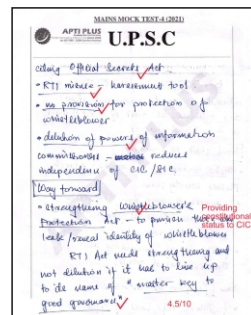 MAINS MOCK TEST-4 (2021)
APTI PLUS
U.P.S.C
citing Official Secrets Act
• RTI misuse – harassment tool
• no provision for protection of
whistleblower
• dilution of powers of information
commissioners – reduces
independence of CIC / SIC.
Way forward
• strengthening Whistleblower's
Protection Act – to punish
leak/reveal identity of whistleblower
Providing
constitutional
status to CIC
RTI Act needs strengthening and
not dilution if it has to live up
to its name of "master key to
good governance"
4.5/10